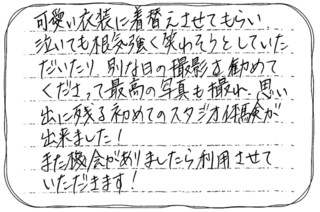 可愛い衣装に着替えさせてもらい、
泣いても根気強く笑わそうとしていた
だいたり、別な日の撮影を勧めて
くださって最高の写真も撮れ、思い
出に残る初めてのスタジオ体験が
出来ました！
また機会がありましたら利用させて
いただきます！